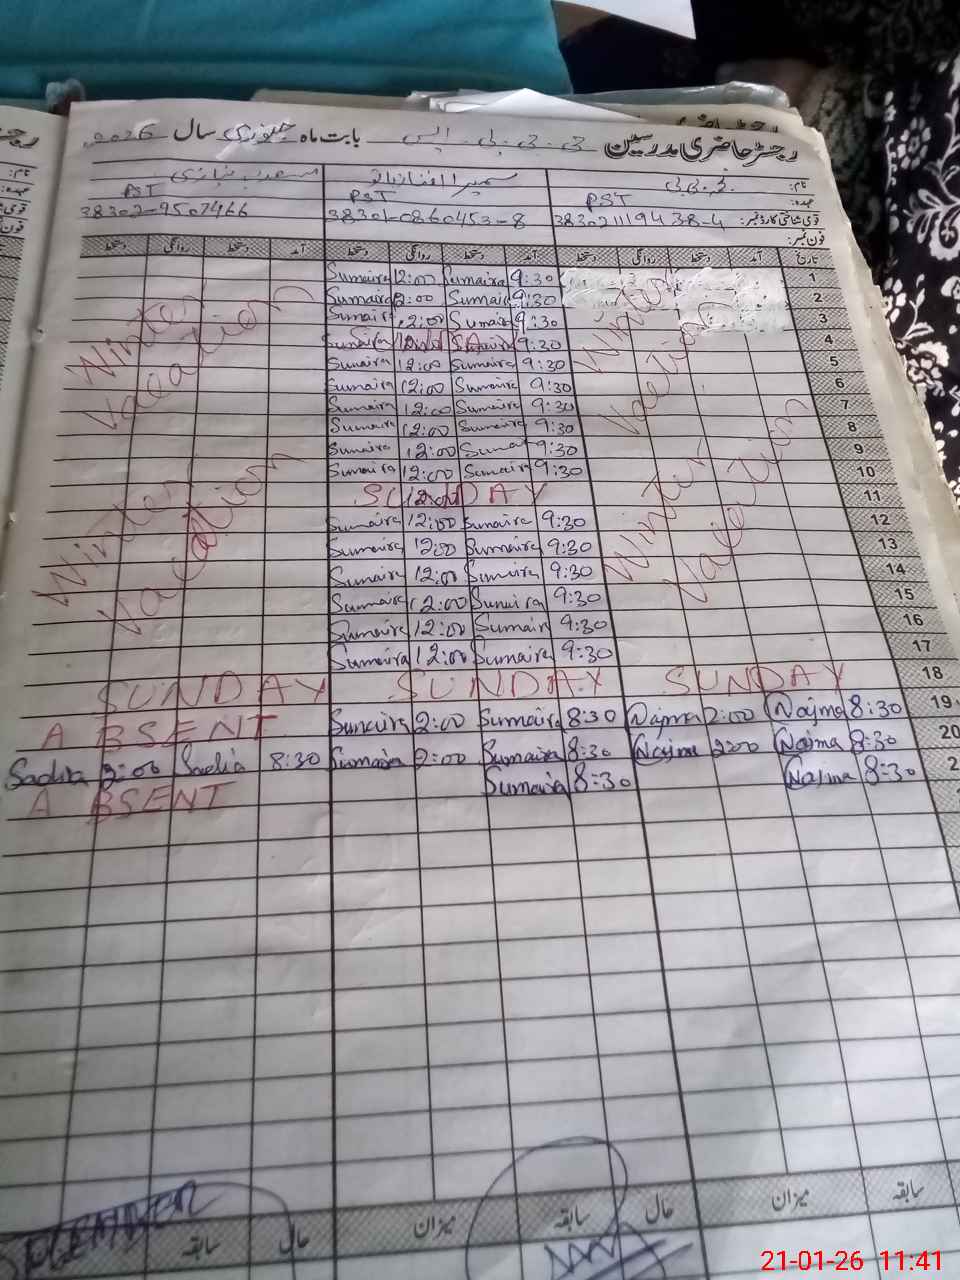 رجسٹر حاضری مدرسین جی۔جی۔پی۔ایس بابت ماہ جنوری سال 2026
نام:
عہدہ: PST PST PST
قومی شناختی کارڈ نمبر: 3830211194 38-4 38301-0860453-8 38302-9507466
فون نمبر:
تاریخ آمد دستخط روانگی دستخط آمد دستخط روانگی دستخط آمد دستخط روانگی دستخط
Sumaira 12:00 Sumaira 9:30 1
Sumaira 2:00 Sumair 9:30 2
Sumaira 12:00 Sumair 9:30 3
Sumaira 9:30 4
Sumaira 12:00 Sumaira 9:30 5
Sumaira 12:00 Sumaira 9:30 6
Sumaira 12:00 Sumaira 9:30 7
Sumaira 12:00 Sumaira 9:30 8
Sumaira 12:00 Sumai 9:30 9
Sumaira 12:00 Sumaira 9:30 10
SUNDAY 11
Sumaira 12:00 Sumaira 9:30 12
Sumaira 12:00 Sumaira 9:30 13
Sumaira 12:00 Sumaira 9:30 14
Sumaira 12:00 Sumaira 9:30 15
Sumaira 12:00 Sumair 9:30 16
Sumaira 12:00 Sumaira 9:30 17
Winter Vacation
Winter Vacation
Winter Vacation
Winter Vacation
SUNDAY SUNDAY SUNDAY 18
ABSENT Sumaira 2:00 Sumaira 8:30 Najma 2:00 Najma 8:30 19
Sadia 2:00 Sadia 8:30 Sumaira 2:00 Sumaira 8:30 Najma 2:00 Najma 8:30 20
ABSENT Sumaira 8:30 Najma 8:30 2
سابقہ میزان حال سابقہ میزان حال سابقہ
21-01-26 11:41